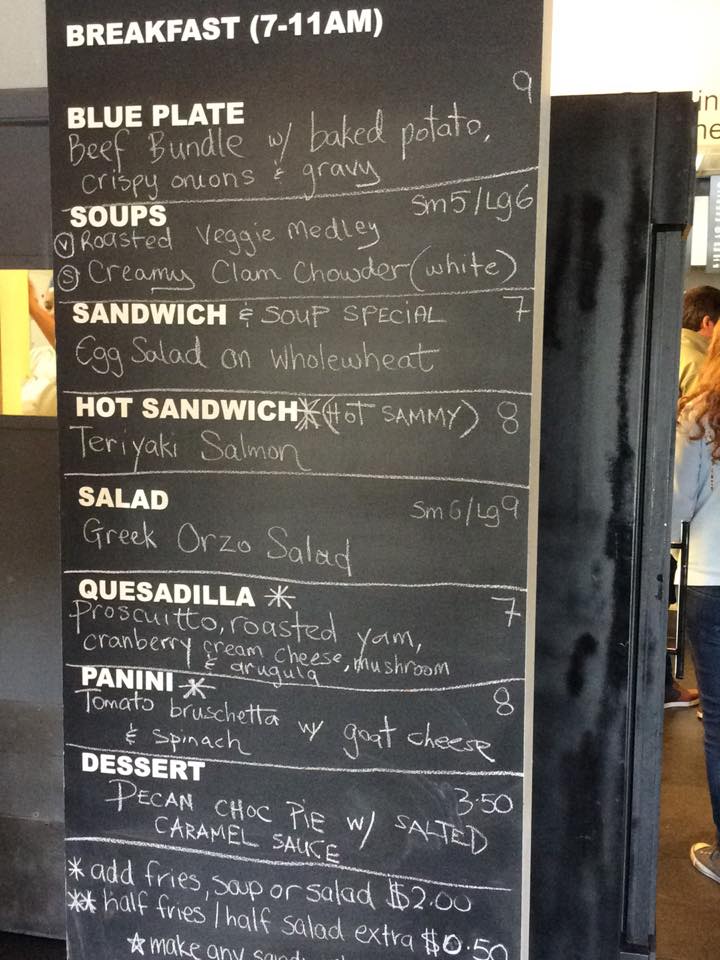 BREAKFAST (7-11AM)
9
BLUE PLATE
Beef Bundle w/ baked potato,
crispy onions & gravy
SOUPS Sm5/Lg6
(V) Roasted Veggie Medley
(S) Creamy Clam Chowder (white)
SANDWICH & SOUP SPECIAL 7
Egg Salad on wholewheat
HOT SANDWICH* (HOT SAMMY) 8
Teriyaki Salmon
SALAD Sm6/Lg9
Greek Orzo Salad
QUESADILLA * 7
Proscuitto, roasted yam,
cranberry cream cheese, mushroom
& arugula
PANINI * 8
Tomato bruschetta w/ goat cheese
& spinach
DESSERT
PECAN CHOC PIE W/ SALTED 3.50
CARAMEL SAUCE
* add fries, soup or salad $2.00
** half fries / half salad extra $0.50
* make any